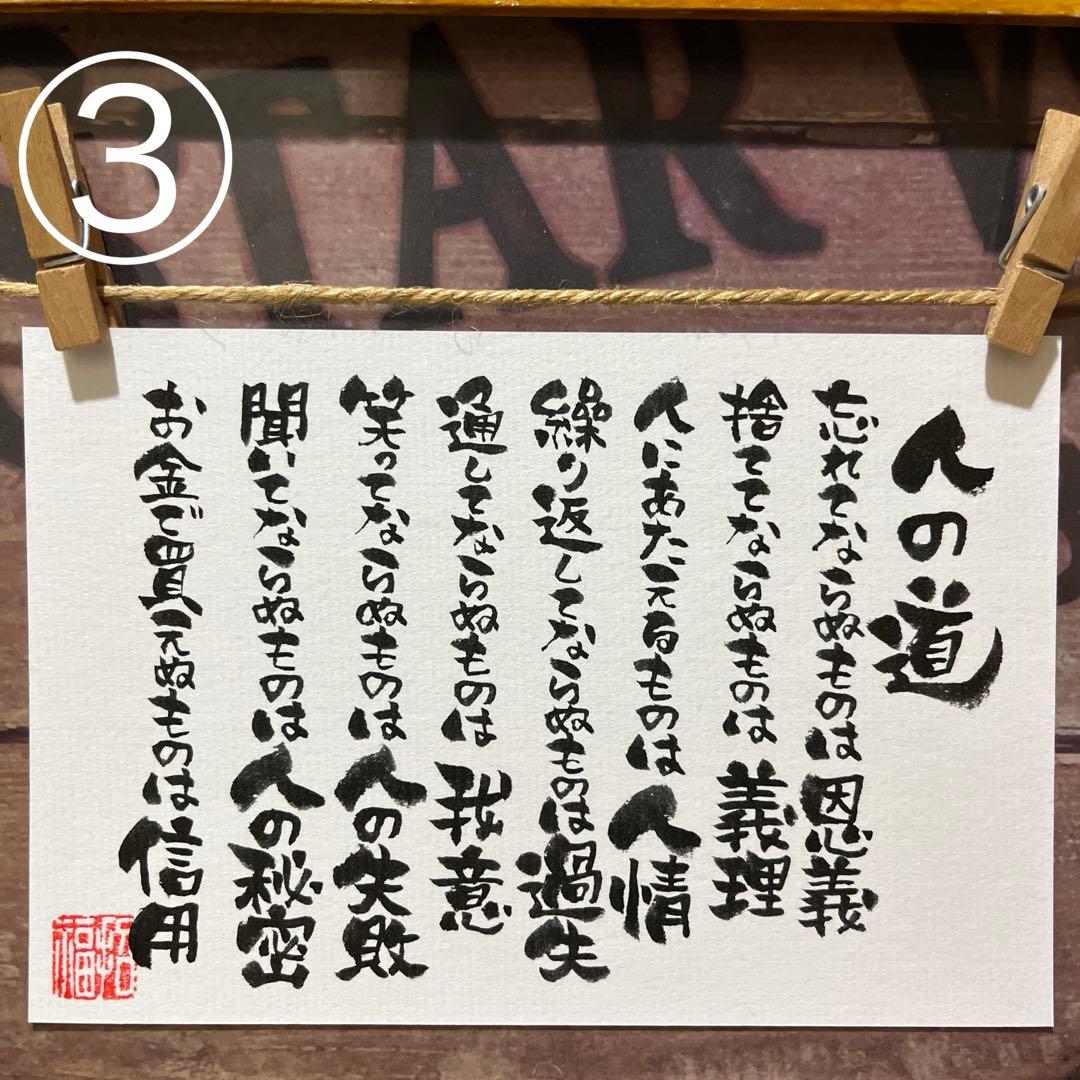 ③
STAR W
人の道
忘れてならぬものは恩義
捨ててならぬものは義理
人にあたえるものは人情
繰り返してならぬものは過失
通してならぬものは我意
笑ってならぬものは人の失敗
聞いてならぬものは人の秘密
お金で買えぬものは信用